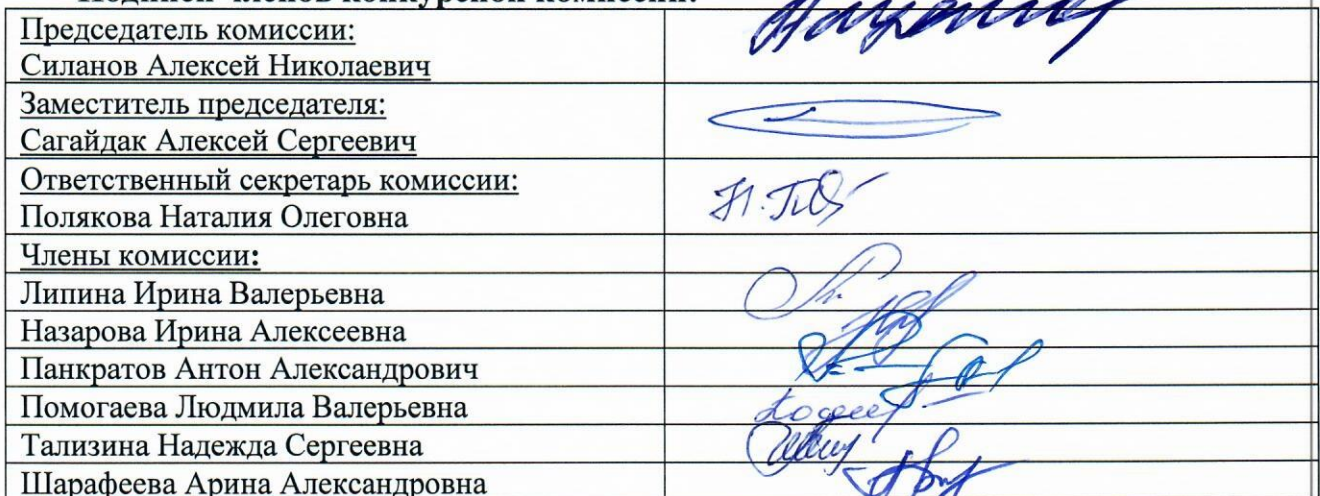 Подписи членов конкурсной комиссии:
Председатель комиссии:
Силанов Алексей Николаевич
Заместитель председателя:
Сагайдак Алексей Сергеевич
Ответственный секретарь комиссии:
Полякова Наталия Олеговна
Члены комиссии:
Липина Ирина Валерьевна
Назарова Ирина Алексеевна
Панкратов Антон Александрович
Помогаева Людмила Валерьевна
Тализина Надежда Сергеевна
Шарафеева Арина Александровна